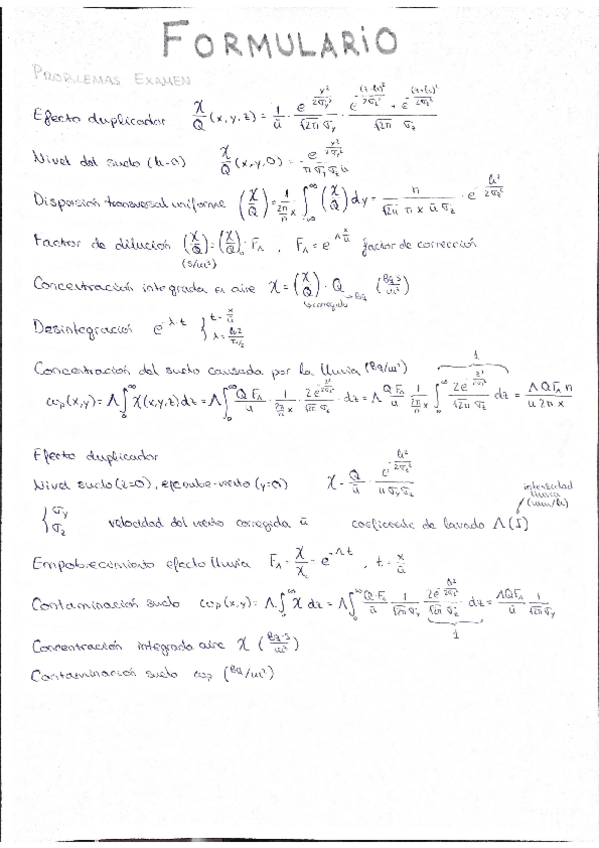 FORMULARIO
PROBLEMAS EXAMEN
Efecto duplicador χ/Q (x,y,z) = 1/ū · e^(-y²/2σy²)/(√2π σy) · (e^(-(z-h)²/2σz²) + e^(-(z+h)²/2σz²))/(√2π σz)
Nivel del suelo (h=0) χ/Q (x,y,0) = e^(-y²/2σy²)/(π σy σz ū)
Dispersión transversal uniforme (χ/Q) = 1/(2π/n x) ∫ (χ/Q) dy = n/(√2π π x ū σz) · e^(-h²/2σz²)
Factor de dilución (χ/Q) = (χ/Q)₀ · FΛ , FΛ = e^(-Λ x/ū) factor de corrección
(s/m³)
Concentración integrada en aire χ = (χ/Q) · Q (Bq·s/m³)
↳corregido →Bq
Desintegración e^(-λ·t) { t = x/ū
λ = ln2/T1/2
Concentración del suelo causada por la lluvia (Bq/m²) 1
ωp(x,y) = Λ∫₀^∞ χ(x,y,z)dz = Λ∫₀^∞ Q FΛ/u · 1/(2π/n x) · 2e^(-z²/2σz²)/(√2π σz) · dz = Λ Q FΛ/u 1/(2π/n x) ∫₀^∞ 2e^(-z²/2σz²)/(√2π σz) dz = Λ Q FΛ n/(u 2π x)
Efecto duplicador
Nivel suelo (z=0), eje nube-viento (y=0) χ = Q/ū · e^(-h²/2σz²)/(π σy σz)
intensidad
lluvia
(mm/h)
{ σy
σz velocidad del viento corregida ū coeficiente de lavado Λ(I)
Empobrecimiento efecto lluvia FΛ = χ/χ₀ = e^(-Λt) , t = x/ū
Contaminación suelo ωp(x,y) = Λ∫₀^∞ χ dz = Λ∫₀^∞ Q·FΛ/ū 1/(√2π σy) 2e^(-h²/2σz²)/(√2π σz) dz = ΛQFΛ/ū 1/(√2π σy)
1
Concentración integrada aire χ (Bq·s/m³)
Contaminación suelo ωp (Bq/m²)